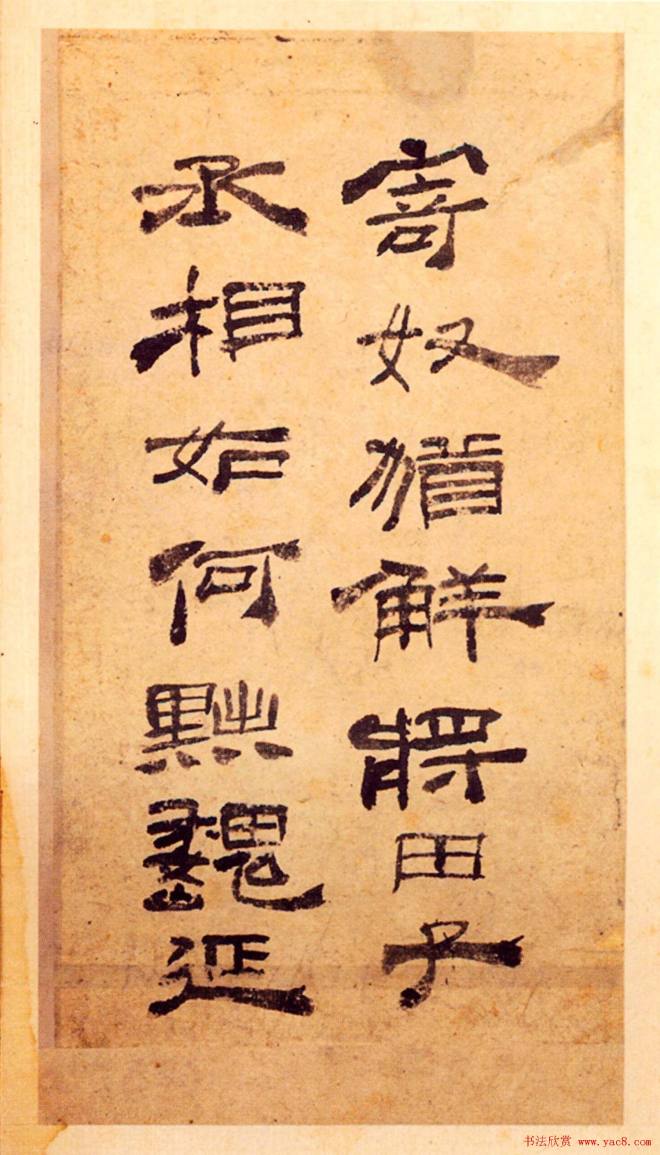 寄奴猶解將田子
丞相如何黜魏延
书法欣赏 www.yac8.com